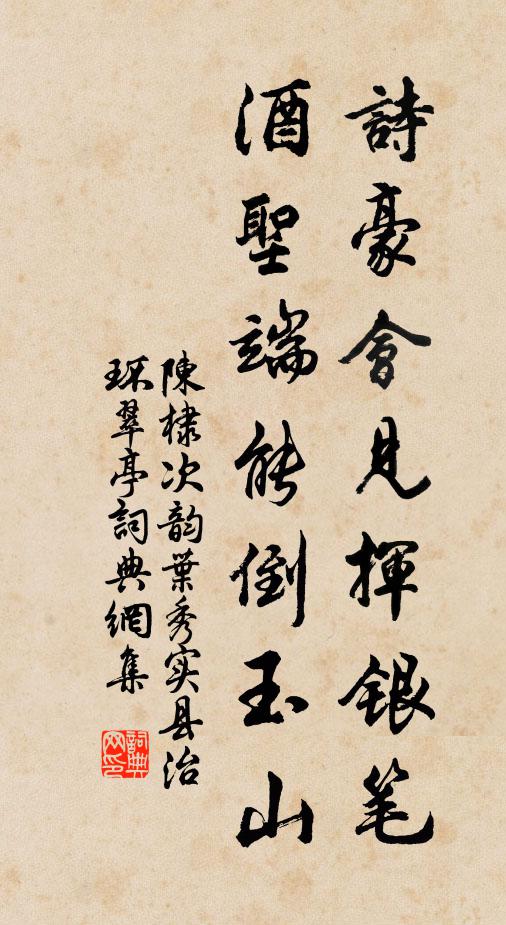 詩豪會見揮銀笔
酒聖端能倒玉山
陳棣次韵葉秀实县治
环翠亭詞典網集
詞典網